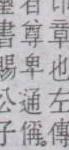 章也左傳
尊卑通稱。
書賜公子